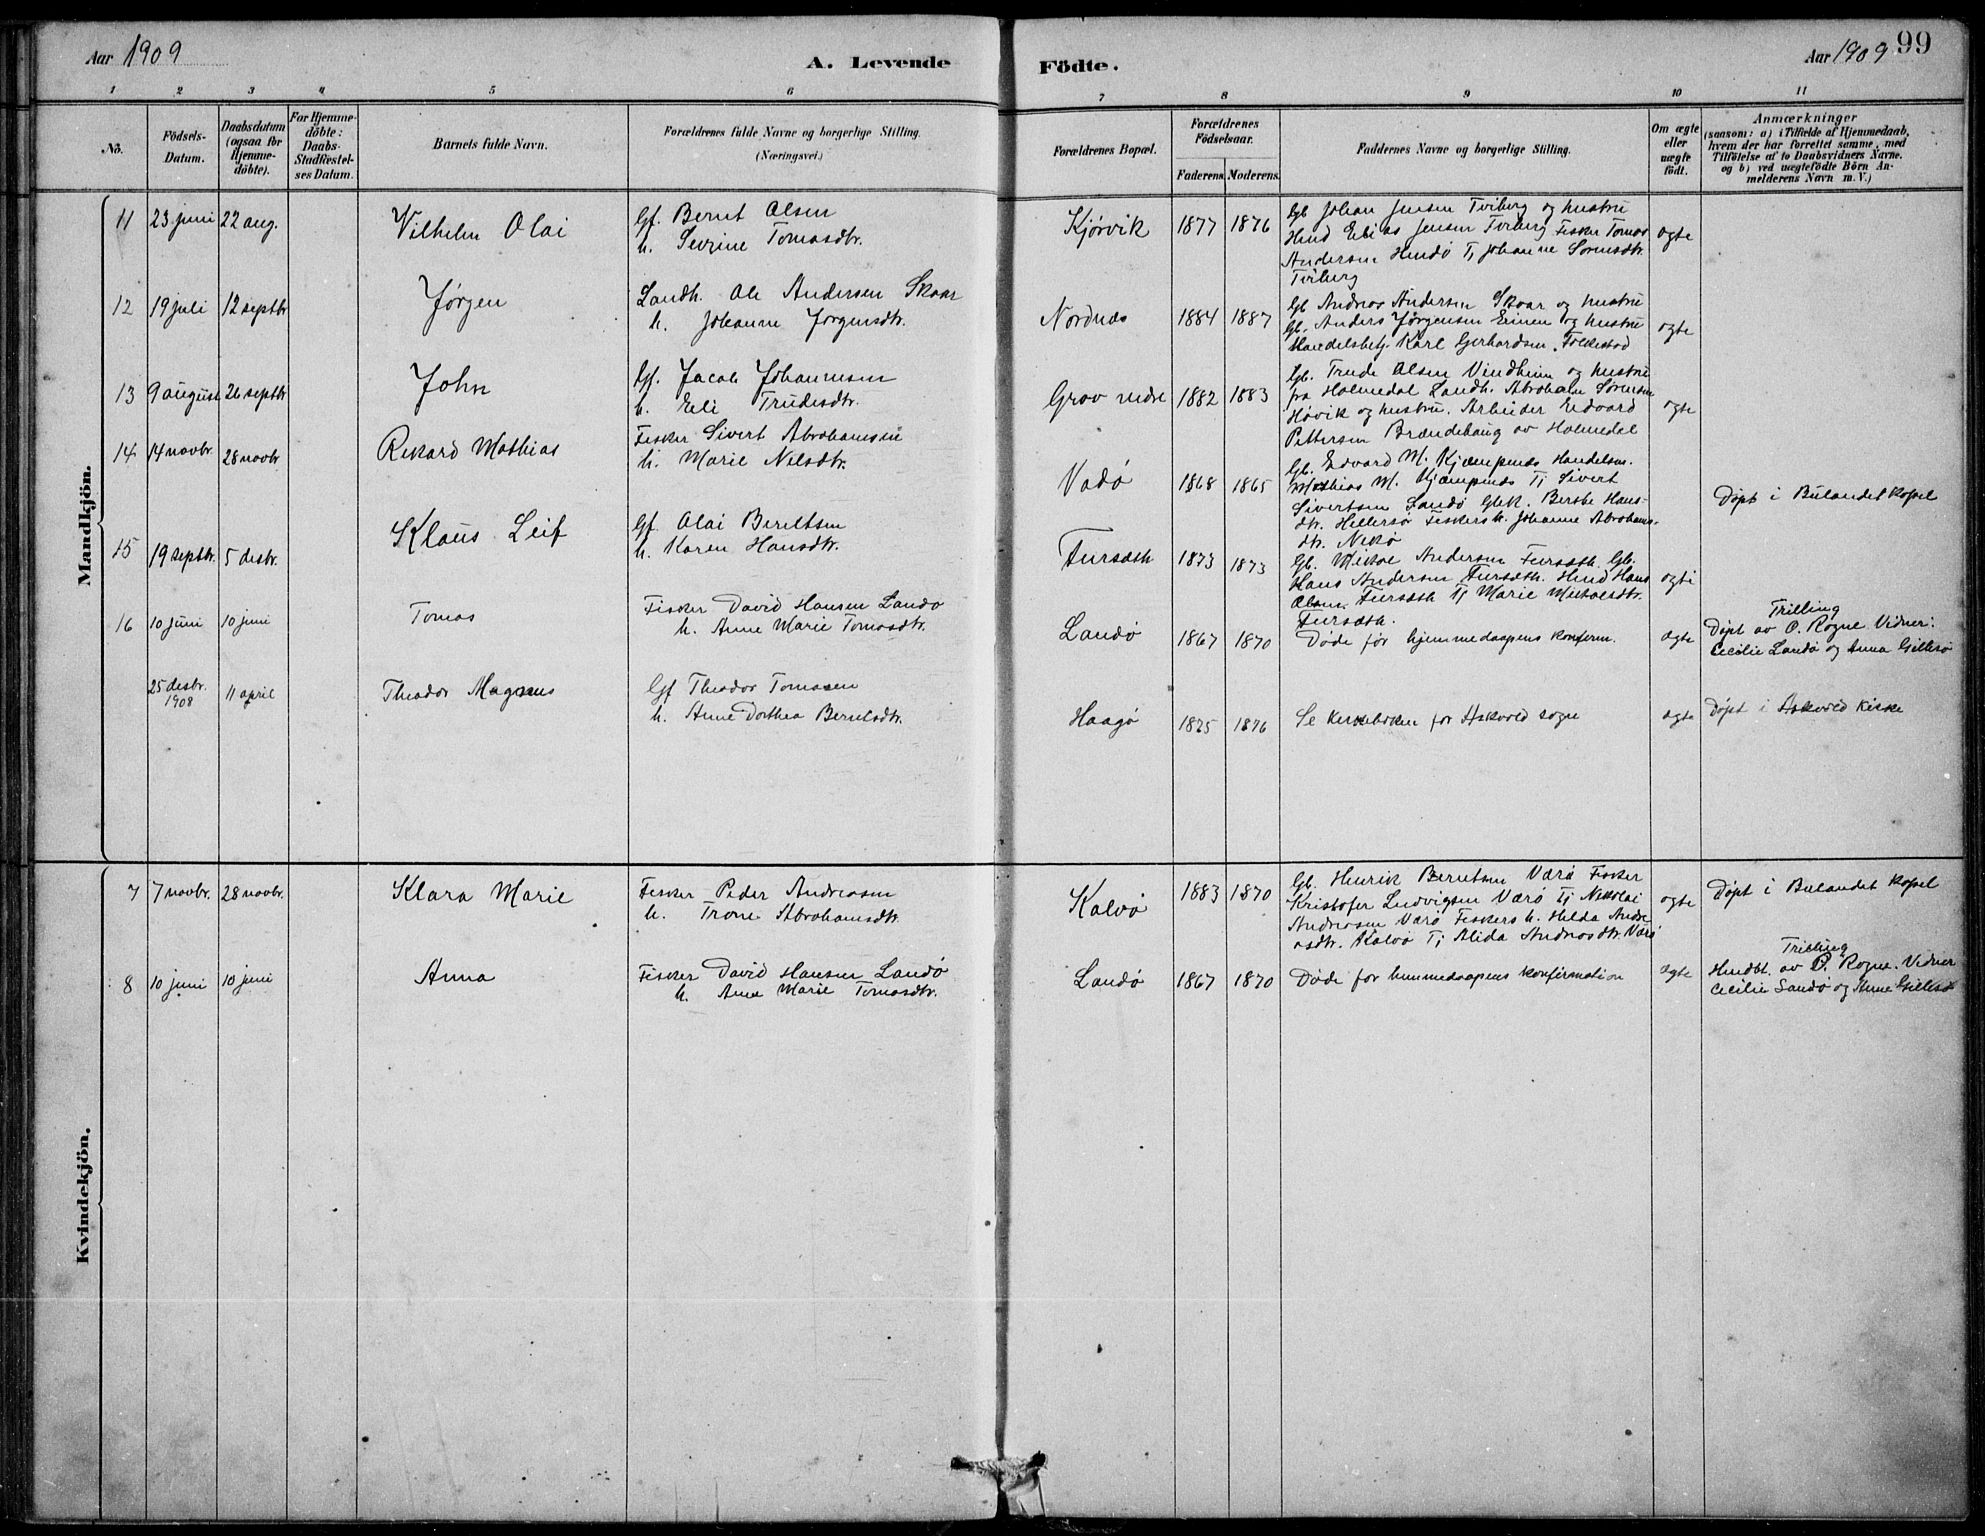 Aar 1909
A. Levende
Födte.
Aar 1909
99
1 2 3 4 5 6 7 8 9 10 11
No.
Födsels-
Datum.
Daabsdatum
(ogsaa for
Hjemme-
döbte).
For Hjemme-
döbte:
Daabs-
Stadfæstel-
ses Datum.
Barnets fulde Navn.
Forældrenes fulde Navne og borgerlige Stilling.
(Næringsvei.)
Forældrenes Bopæl.
Forældrenes
Födselsaar.
Faderens. Moderens.
Faddernes Navne og borgerlige Stilling.
Om ægte
eller
uægte
födt.
Anmærkninger
(saasom: a) i Tilfælde af Hjemmedaab,
hvem der har forrettet samme, med
Tilföielse af to Daabsvidners Navne.
og b) ved uægtefödte Börn An-
melderens Navn m. V.)
Mandkjön.
11 23 juni 22 aug. Vilhelm Olai
Gf. Bernt Olsen
h. Sevrine Tomasdtr.
Kjørvik 1877 1876
Gb Johan Jensen Tviberg og hustru
Hmd Elias Jensen Tviberg Fisker Tomas
Andersen Hendø Tj Johanne Sørensdtr.
Tviberg
ægte
12 19 juli 12 septbr Jørgen
Landh. Ole Andersen Skaar
h. Johanne Jørgensdtr.
Nordnæs 1884 1887
Gb Andreas Andersen Skaar og hustru
Gb. Anders Jørgensen og hustru
Handelsbetj. Karl Gerhardsen. Folkestad
ægte
13 9 august 26 septbr John
Gf. Jacob Johannesen
h. Eli Trudesdtr.
Grov 1882 1883
Gb. Trude Olsen Vindheim og hustru
fra Holmedal Landh. Abraham Sørensen
Høvik og hustru. Arbeider Edvard
Pettersen Brændehaug av Holmedal
ægte
14 14 novbr. 28 novbr Rikard Mathias
Fisker Sivert Abrahamsen
h. Marie Nelsdtr.
Vadø 1868 1865
Gb. Edvard M. Kjæmpenæs Handelsm.
Mathias M. Kjæmpenæs Tj Sivert
Sivertsen Landø Gbk. Berthe Hans-
dtr. Hillersø Fiskersh. Johanne Abrahams-
dtr. Nekø
Døpt i Bulandet kapel
15 19 septbr. 5 desbr. Klaus Leif
Gf Olai Berntsen
h. Karen Hansdtr.
Fursæth 1873 1873
Gb. Mikal Andersen Fursæth. Gb.
Hans Andersen Fursæth. Hmd Hans
Olsen Fursæth Tj Marie Mikalsdtr.
Fursæth.
ægte
16 10 juni 10 juni Tomas
Fisker David Hansen Landø
h. Anne Marie Tomasdtr.
Landø 1867 1870
Døde før hjemmedaapens konfirm.
ægte
Trilling
Døpt av O. Rogne Vidner:
Cecilie Landø og Anna Gillesø
25 desbr.
1908
11 april Theodor Magnus
Gf Theodor Tomasen
h. Anne Dorthea Berntsdtr.
Haagø 1875 1876
Se kirkeboken for Askvold sogn
ægte
Døpt i Askvold kirke
Kvindekjön.
7 7 novbr. 28 novbr. Klara Marie
Fisker Peder Andreasen
h. Trone Abrahamsdtr.
Kalvø 1883 1870
Gb. Henrik Berntsen Værø Fisker
Kristofer Ludvigsen Værø Tj Nikolai
Andreasen Værø Fiskers h. Hilda Andre
asdtr. Kalvø Tj Alida Andreasdtr. Værø
ægte
Døpt i Bulandet kapel
8 10 juni 10 juni Anna
Fisker David Hansen Landø
h. Anne Marie Tomasdtr.
Landø 1867 1870
Døde før hjemmedaapens konfirmation
ægte
Trilling
av O. Rogne. Vidner
Cecilie Landø og Anne Gillesø